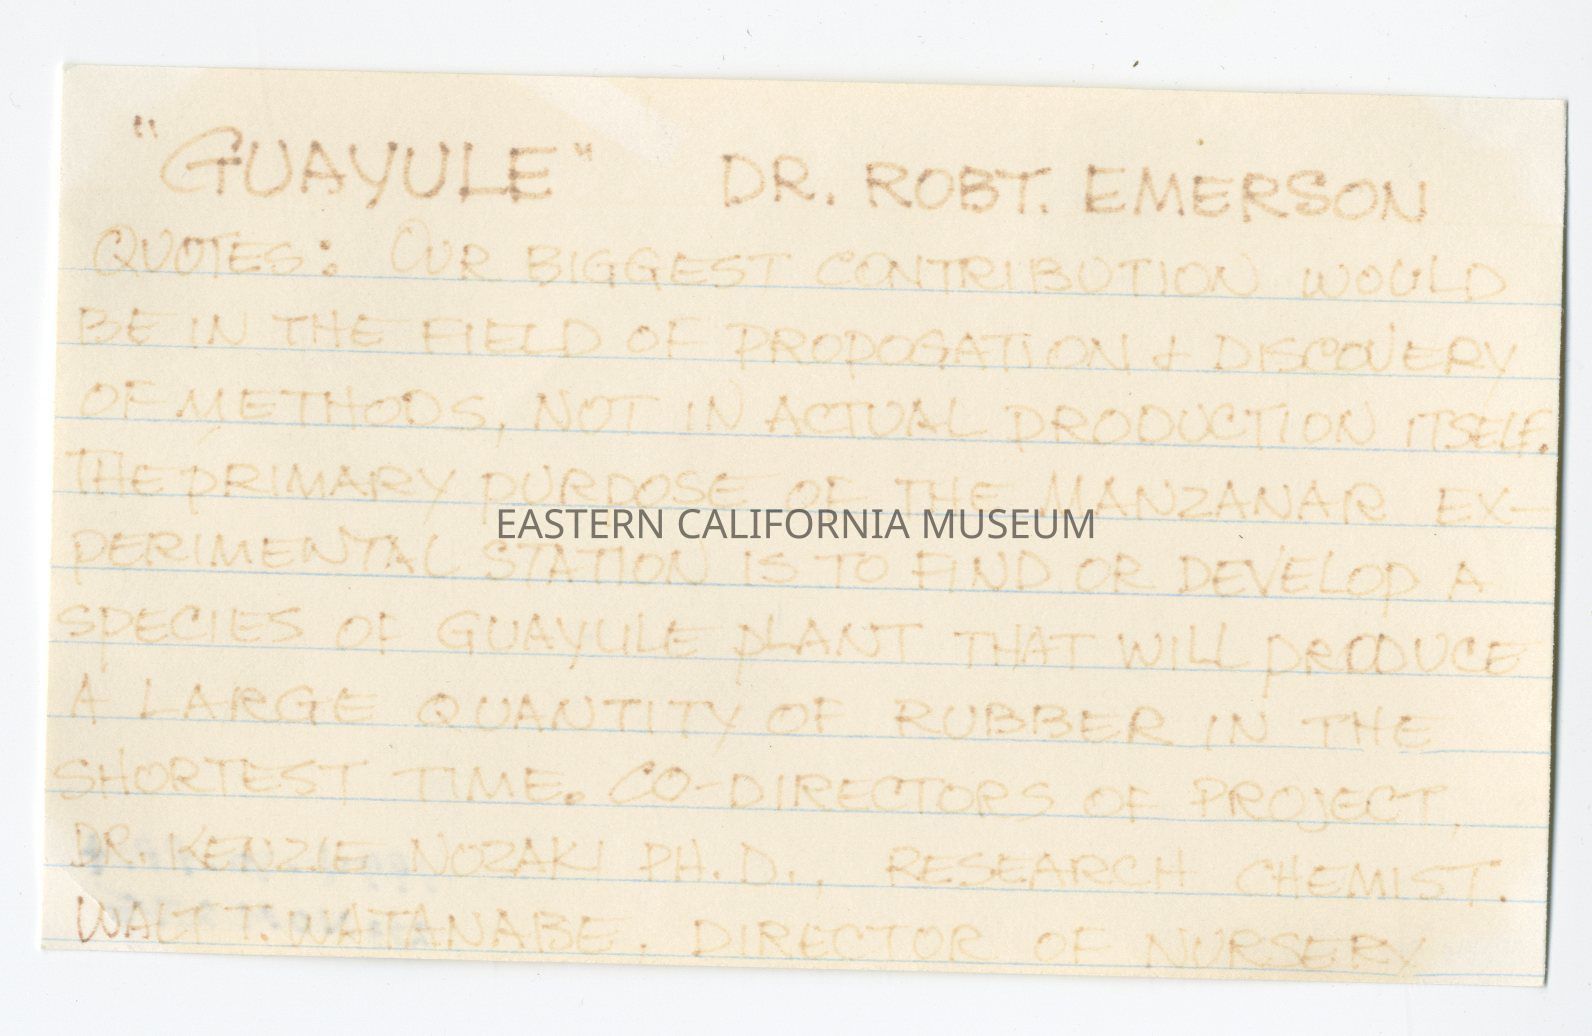 "GUAYULE" DR. ROBT. EMERSON
QUOTES: OUR BIGGEST CONTRIBUTION WOULD
BE IN THE FIELD OF PROPOGATION & DISCOVERY
OF METHODS, NOT IN ACTUAL PRODUCTION ITSELF.
THE PRIMARY PURPOSE OF THE MANZANAR EX-
EASTERN CALIFORNIA MUSEUM
PERIMENTAL STATION IS TO FIND OR DEVELOP A
SPECIES OF GUAYULE PLANT THAT WILL PRODUCE
A LARGE QUANTITY OF RUBBER IN THE
SHORTEST TIME. CO-DIRECTORS OF PROJECT,
DR. KENZIE NOZAKI PH.D., RESEARCH CHEMIST.
WALT T. WATANABE. DIRECTOR OF NURSERY